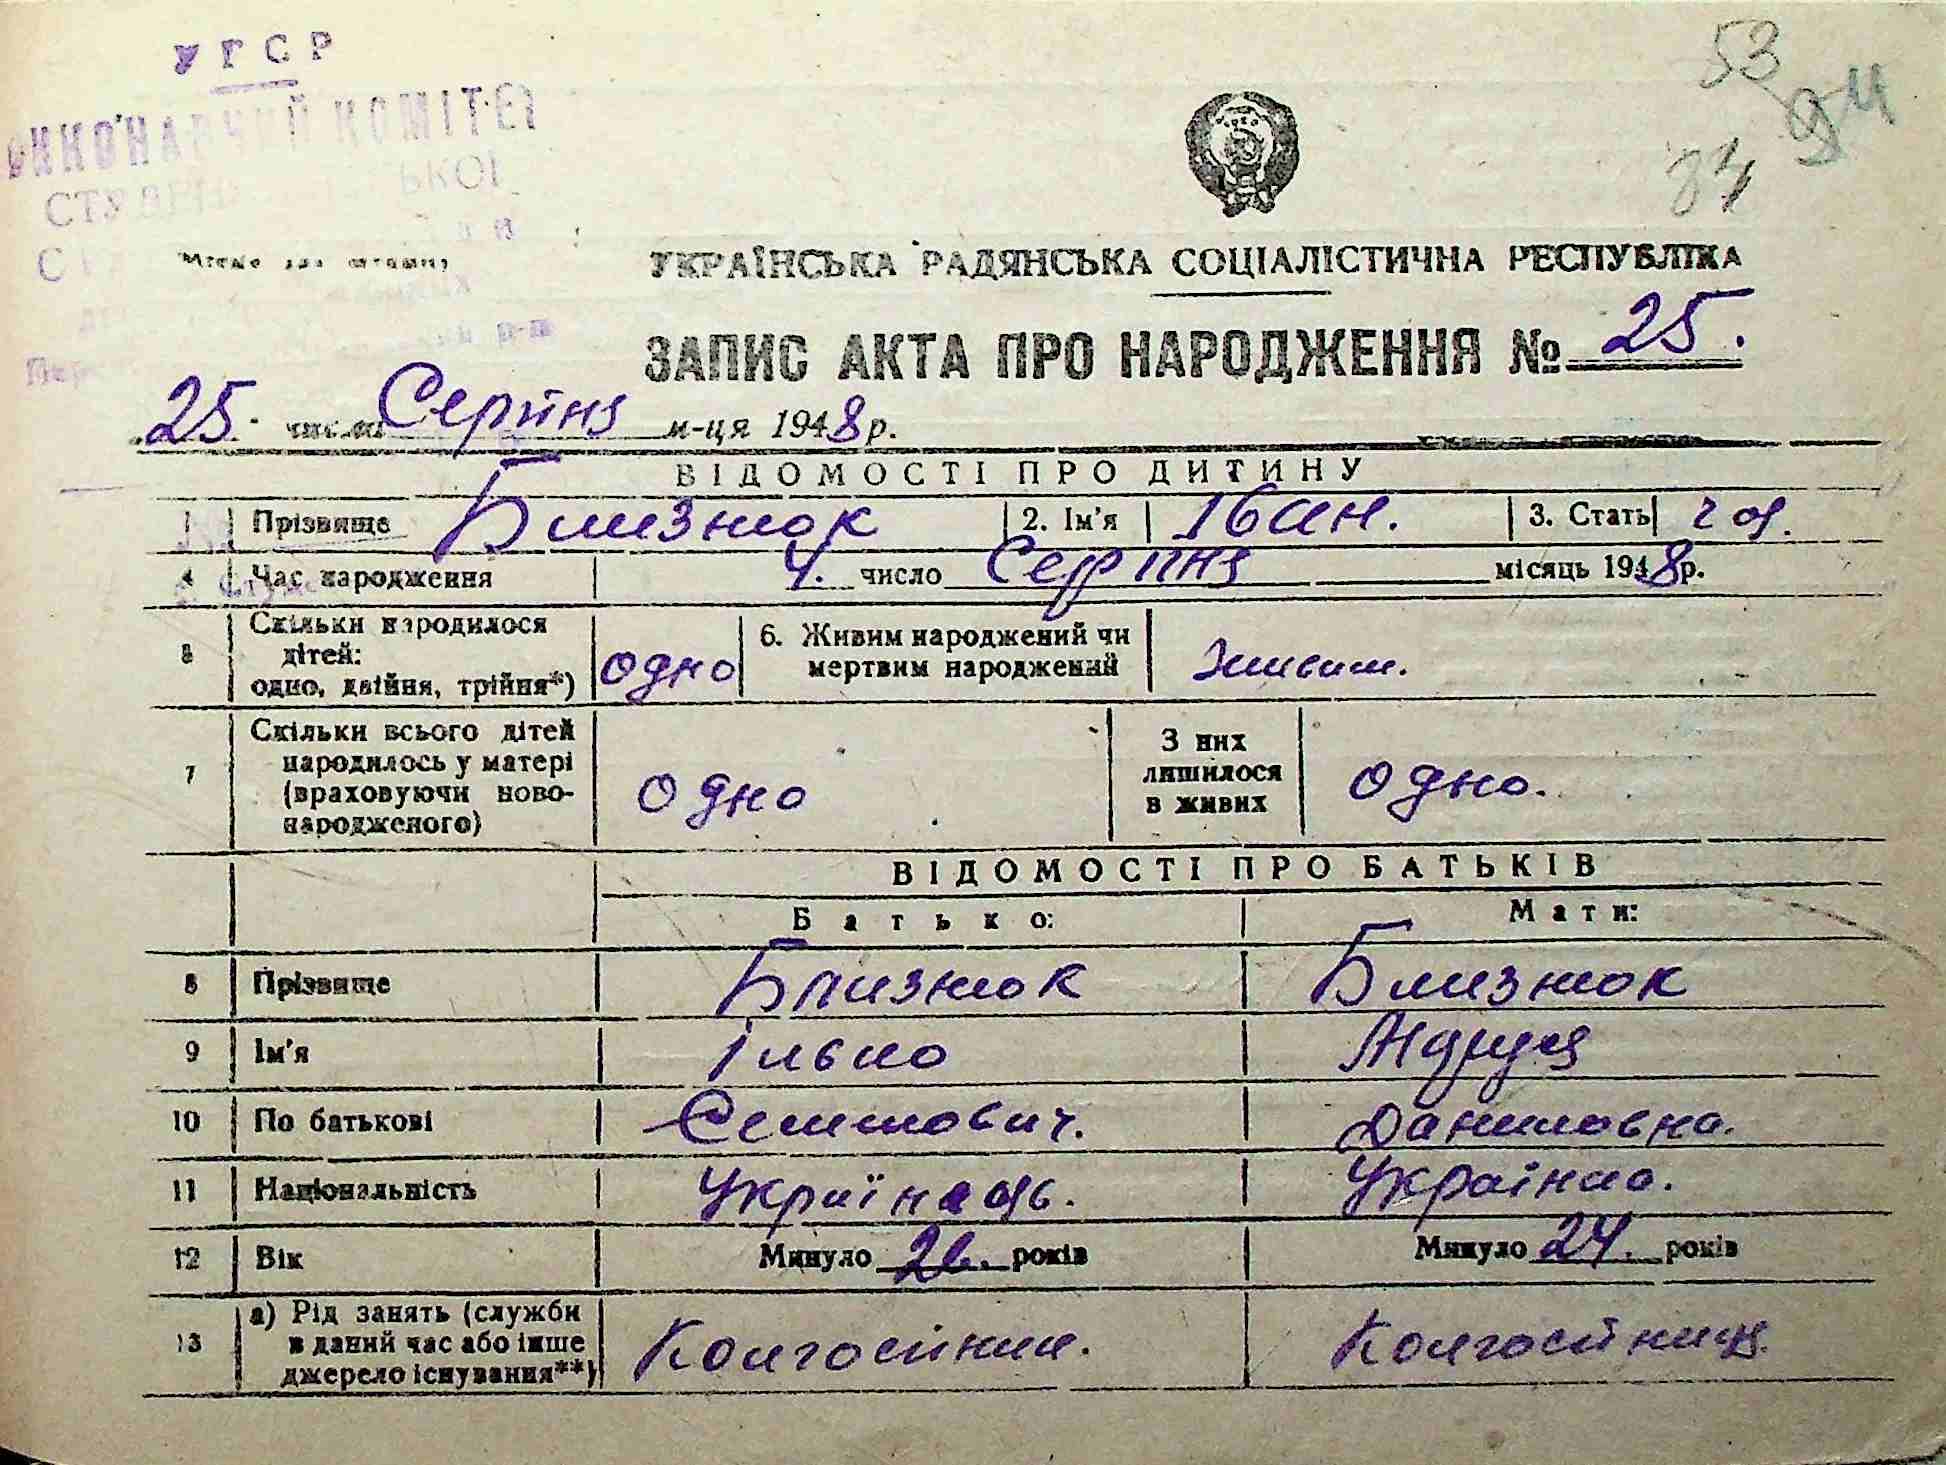 УРСР
ВИКОНАВЧИЙ КОМІТЕТ
53
94
84
Місце для штампу
УКРАЇНСЬКА РАДЯНСЬКА СОЦІАЛІСТИЧНА РЕСПУБЛІКА
ЗАПИС АКТА ПРО НАРОДЖЕННЯ № 25.
25. числа Серпня м-ця 1948 р.
ВІДОМОСТІ ПРО ДИТИНУ
1 Прізвище Близнюк 2. Ім'я Іван. 3. Стать чол.
4 Час народження 4. число Серпня місяць 1948 р.
5 Скільки народилося дітей: одно, двійня, трійня*) одно 6. Живим народжений чи мертвим народжений Живим.
7 Скільки всього дітей народилось у матері (враховуючи новонародженого) одно З них лишилося в живих одно.
ВІДОМОСТІ ПРО БАТЬКІВ
Батько: Мати:
8 Прізвище Близнюк Близнюк
9 Ім'я Ілько
10 По батькові Семенович. Даниловна.
11 Національність Українець. Українка.
12 Вік Минуло 26. років Минуло 24. років
13 а) Рід занять (служби в даний час або інше джерело існування**) Колгоспник. Колгоспниця.